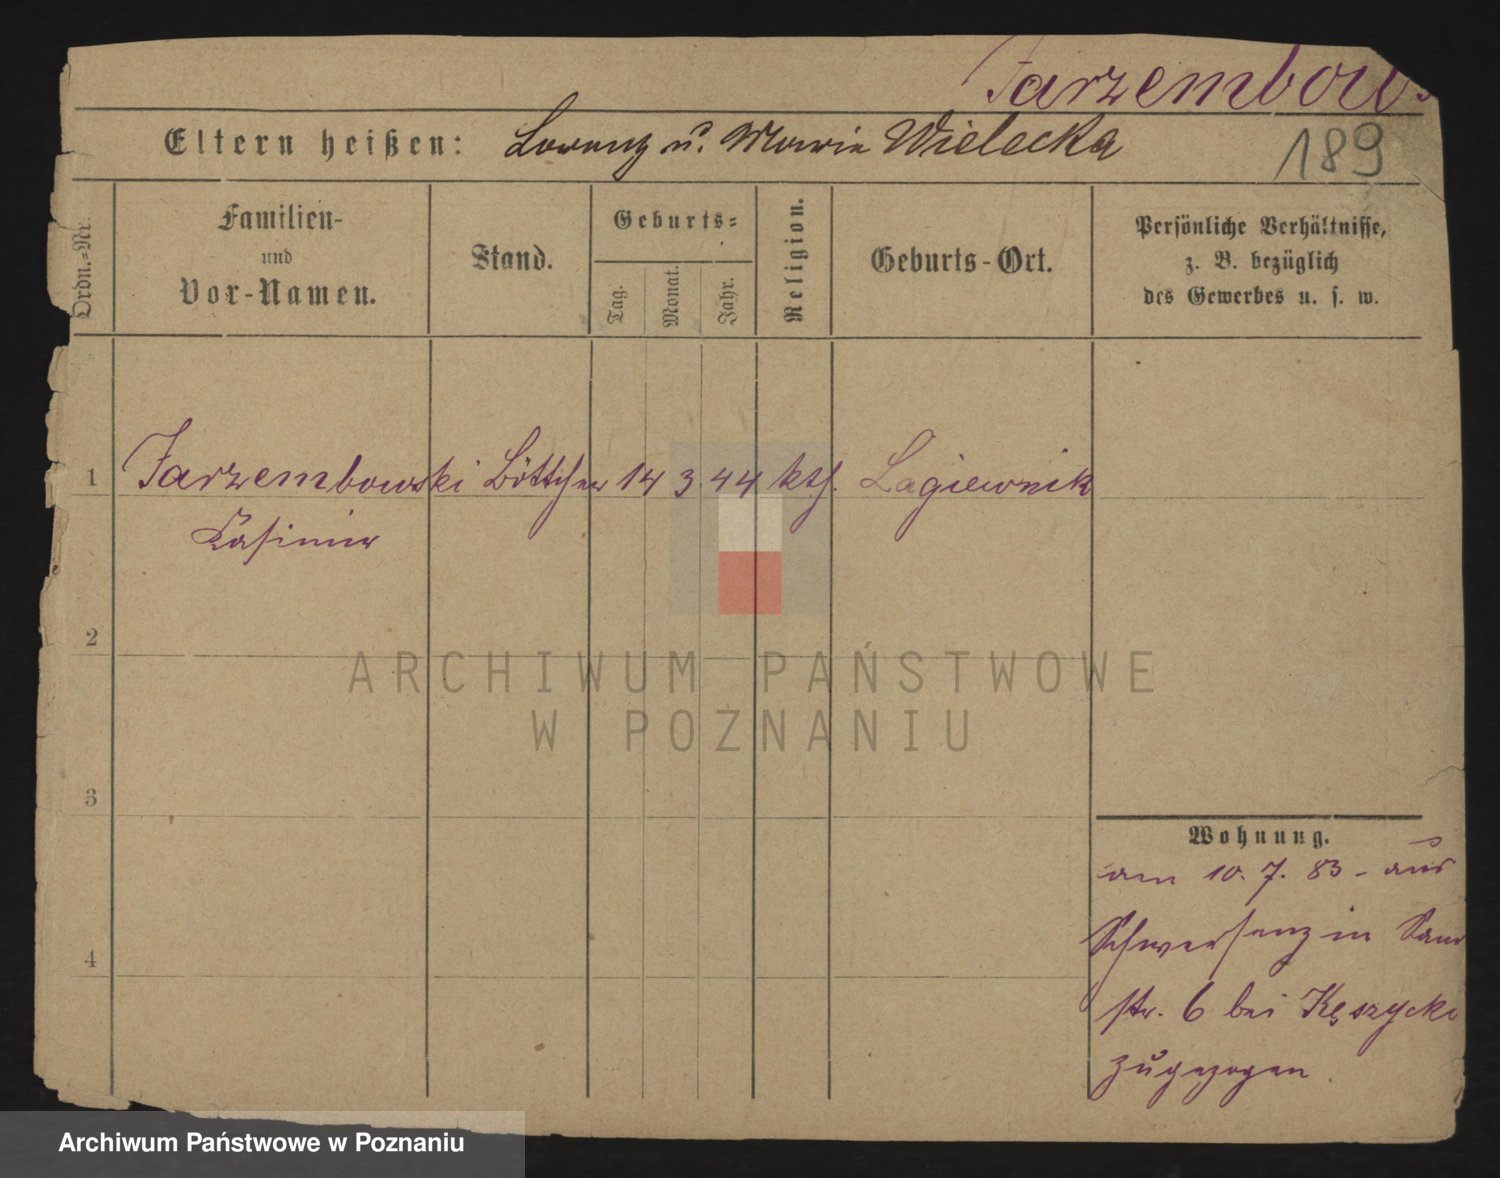 Jarzembows
Eltern heißen: Lorenz u. Marie Wielecka
189
Ordn.-Nr.
Familien-
und
Vor-Namen.
Stand.
Geburts-
Tag.
Monat.
Jahr.
Religion.
Geburts-Ort.
Persönliche Verhältnisse,
z. B. bezüglich
des Gewerbes u. s. w.
1 Jarzembowski Böttcher 14 3 44 kth. Lagiewnik
Casimir
2
ARCHIWUM PAŃSTWOWE
W POZNANIU
3
Wohnung.
am 10. 7. 83 - aus
Schwersenz in Sand
4
str. 6 bei Kęszycki
zugezogen
Archiwum Państwowe w Poznaniu